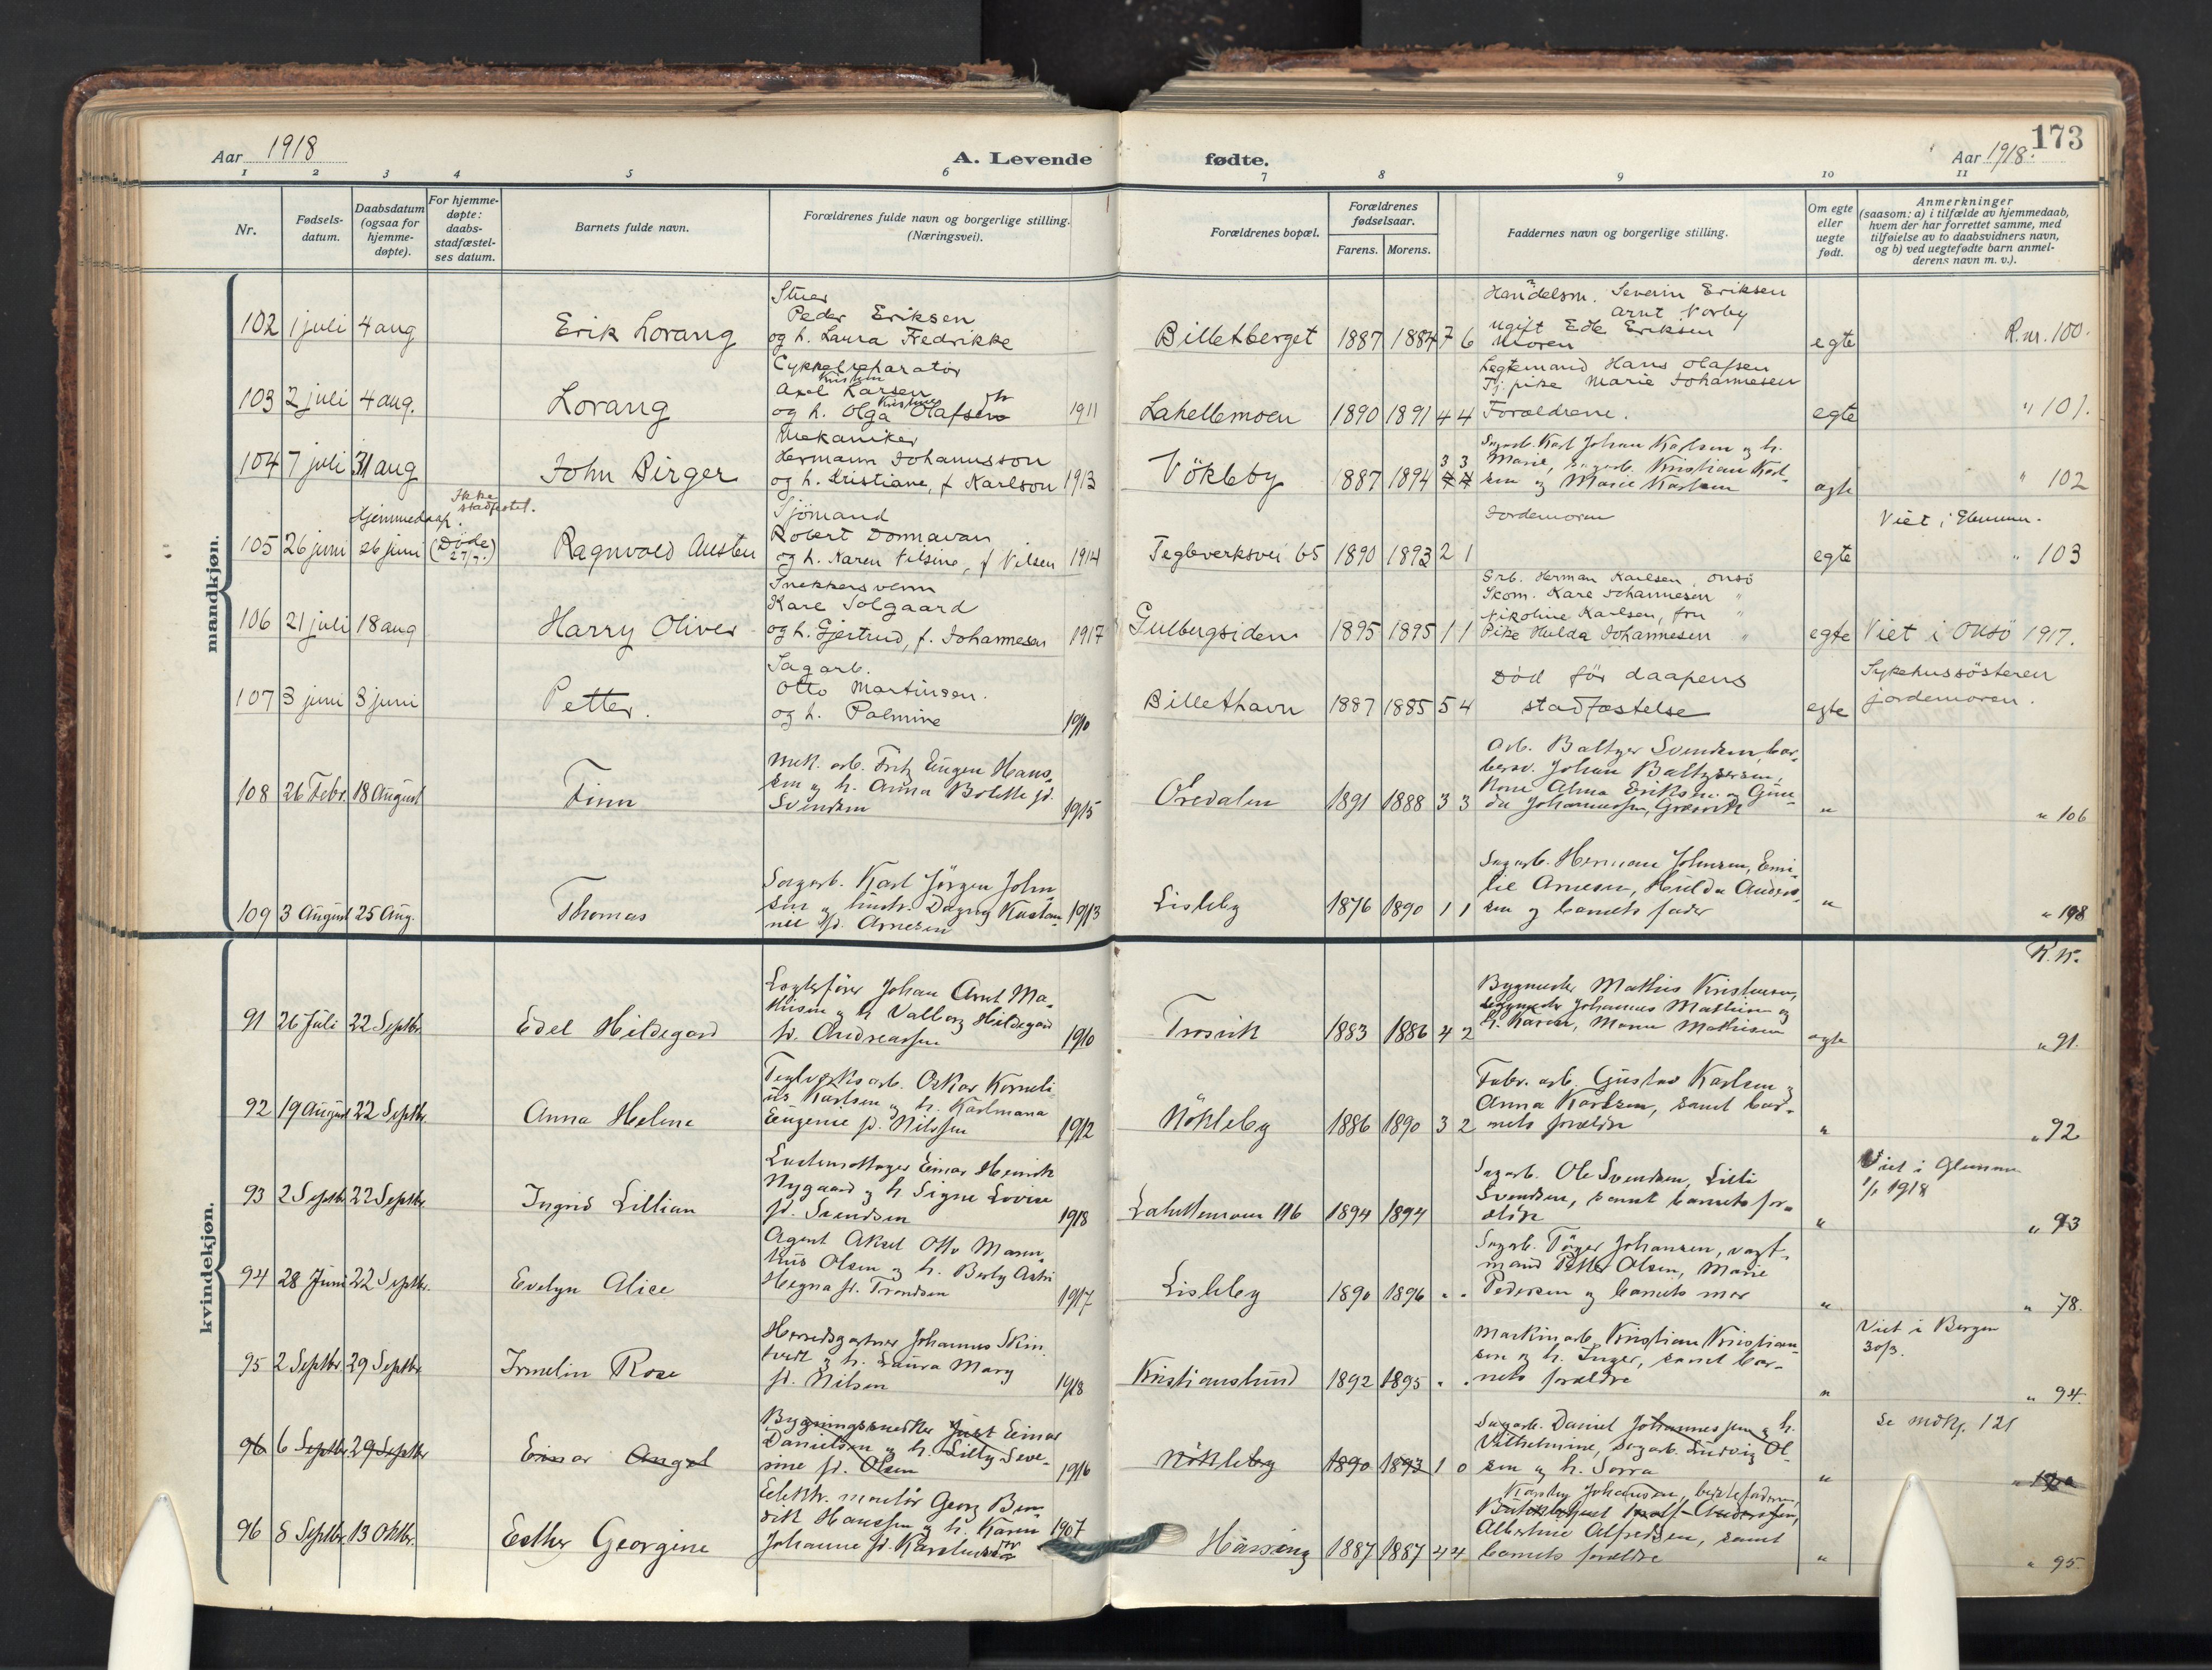 Aar 1918
A. Levende
fødte.
Aar 1918.
173
1 2 3 4 5 6 7 8 9 10 11
Nr.
Fødsels-
datum.
Daabsdatum
(ogsaa for
hjemme-
døpte).
For hjemme-
døpte:
daabs-
stadfæstel-
ses datum.
Barnets fulde navn.
Forældrenes fulde navn og borgerlige stilling.
(Næringsvei).
Forældrenes bopæl.
Forældrenes
fødselsaar.
Farens. Morens.
Faddernes navn og borgerlige stilling.
Om egte
eller
uegte
født.
Anmerkninger
(saasom: a) i tilfælde av hjemmedaab,
hvem der har forrettet samme, med
tilføielse av to daabsvidners navn,
og b) ved uegtefødte barn anmel-
derens navn m. v.).
mandkjøn.
102 1 juli 4 aug
Erik Lorang
Stuer
Peder Eriksen
og h. Laura Fredrikke
Billetberget 1887 1884 7 6
Handelsm. Severin Eriksen
Arnt Norby
ugift Eda Eriksen
Moren
egte
R.nr. 100.
103 2 juli 4 aug.
Lorang
Cykkelreparatør
Axel Larsen
og h. Olga Olafsen
1911
Lahellemoen 1890 1891 4 4
Legtemand Hans Olafsen
Tj. pike Marie Johannesen
Forældrene.
egte
" 101.
104 7 juli 31 aug
John Birger
Mekaniker
Hermann Johansson
og h. Kristiane, f Karlson 1913
Nökleby 1887 1894 3 3
Sagarb. Karl Johan Karlsen og h.
Marie, sagarb. Kristian Karl-
sen og Marie Karlsen
egte
" 102
105 26 juni 26 juni
Hjemmedaap.
Ikke
stadfæstet.
(Døde
27/7.)
Ragnvald Austen
Sjömand
Robert Donnavan
og h. Karen Nilsine, f Nilsen 1914
Teglverksvei 65 1890 1893 2 1
Jordemoren
egte
Viet i Glemmen.
" 103
106 21 juli 18 aug
Harry Oliver
Snekkersvenn
Kare Solgaard
og h. Gjertrud, f. Johannesen 1917
Gulbergsiden 1895 1895 1 1
Grb. Herman Karlsen, Onsö
Skom. Kare Johannesen "
Nikoline Karlsen, fru "
Pike Hulda Johannesen "
egte
Viet i Onsö 1917.
107 3 juni 3 juni
Petter.
Sagarb.
Otto Martinsen.
og h. Palmine
1910
Billethavn 1887 1885 5 4
Död för daapens
stadfæstelse
egte
Sykehussösteren
jordemoren.
108 26 Febr. 18 August
Finn
Mek. arb. Fritz Eugen Hans-
sen og h. Anna Bolette fd.
Svendsen
1915
Oredalen 1891 1888 3 3
Arb. Baltzer Svendsen, bar-
bersv. Johan Baltzersen,
Kone Alma Eriksen og Gun-
da Johannessen, Græsvik
"
" 106
109 3 August 25 Aug.
Thomas
Sagarb. Karl Jörgen John-
sen og hustr. Dagny Kristia-
ne fd. Arnesen
1913
Lisleby 1876 1890 1 1
Sagarb. Herman Johnsen, Emi-
lie Arnesen, Hulda Anders-
sen og barnets fader
"
" 108
kvindekjøn.
R.N.
91 26 Juli 22 Septbr.
Edel Hildegard
Logtefører Johan Arnt Ma-
thisen og h Valborg Hildegard
fd. Andreassen
1910
Trosvik 1883 1886 4 2
Bygmester Mathis Kristensen,
bygmestr Johannes Mathisen og
h. Karen, Marie Mathisen
egte
" 91.
92 19 August 22 Septbr.
Anna Helene
Teglverksarb. Oskar Korneli-
us Karlsen og h. Karlmana
Eugenie fd. Nilssen
1912
Nökleby 1886 1890 3 2
Fabr. arb. Gustav Karlsen og
Anna Karlsen, samt bar-
nets forældre
"
" 92
93 2 Septbr. 22 Septbr.
Ingrid Lillian
Lastemottager Einar Henrik
Nygaard og h. Signe Lovise
fd. Svendsen
1918
Lahellemoen 116 1894 1894
Sagarb. Ole Svendsen, Lilli
Svendsen, samt barnets for-
ældre
"
Viet i Glemmen
1/1 1918
" 93
94 28 Juni 22 Septbr.
Evelyn Alice
Agent Aksel Otto Marin-
ius Olsen og h. Berly Astri
Hegna fd. Trondsen
1917
Lisleby 1890 1896 " "
Sagarb. Töger Johansen, vagt-
mand Petter Olsen, Marie
Pedersen og barnets mor
"
" 78.
95 2 Septbr. 29 Septbr.
Irmelin Rose
Herredsgartner Johannes Skim-
tveit og h. Laura Mary
fd. Nilsen
1918
Kristianslund 1892 1895 " "
Maskinarb. Kristian Kristian-
sen og h. Inger, samt bar-
nets forældre
"
Viet i Bergen
30/3.
" 94.
96 6 Septbr. 29 Septbr.
Einar Angel
Bygningssnedker Just Einar
Danielsen og h. Lilly Seve-
rine fd. Olsen
1916
Nökleby 1890 1893 1 0
Sagarb. Daniel Johannessen og h.
Vilhelmine, sagarb. Ludvig Ol-
sen og h. Sorra
"
Se mdkj. 121
96 8 Septbr. 13 Oktbr.
Esther Georgine
Elektr. montör Georg Ben-
dik Hanssen og h. Karen
Johanne fd. Karelius
1907
Hässing 1887 1887 4 4
Karsby Johansen, bestefaderen,
Albertine Alfredsen, samt
barnets forældre
"
" 95.